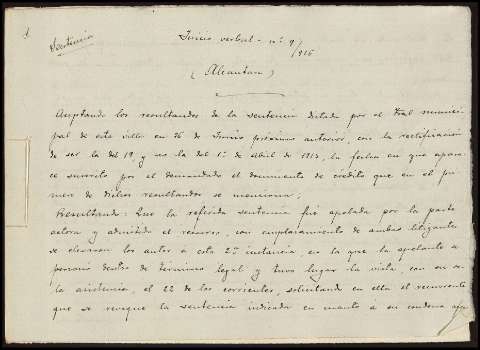 Sentencia
Juicio verbal - nº 9/916
(Alcantara)
Aceptando los resultandos de la sentencia dictada por el Tral munici-
pal de esta villa en 26 de Junio próximo anterior, con la rectificación
de ser la del 19 y no la del 1º de abril de 1912, la fecha en que apare-
ce suscrito por el demandado el documento de crédito que en el pri-
mero de dichos resultandos se menciona;
Resultando: Que la referida sentencia fué apelada por la parte
actora y admitido el recurso, con emplazamiento de ambas litigantes
se elevaron los autos a esta 2ª instancia, en la que la apelante se
personó dentro de término legal y tuvo lugar la vista, con su so-
la asistencia, el 22 de los corrientes, solicitando en ella el recurrente
que se revoque la sentencia indicada en cuanto á su condena